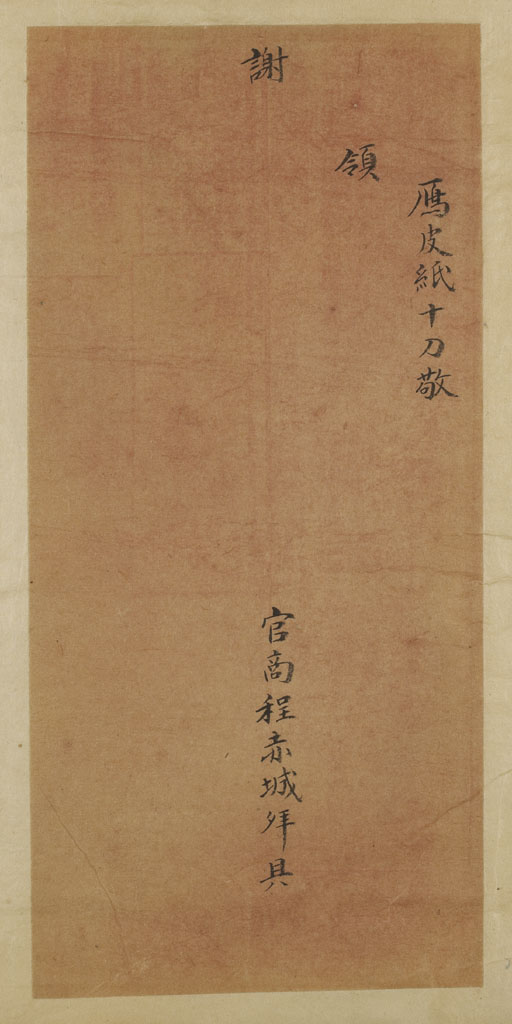 鴈皮紙十刀敬
領
謝
官商程赤城拜具